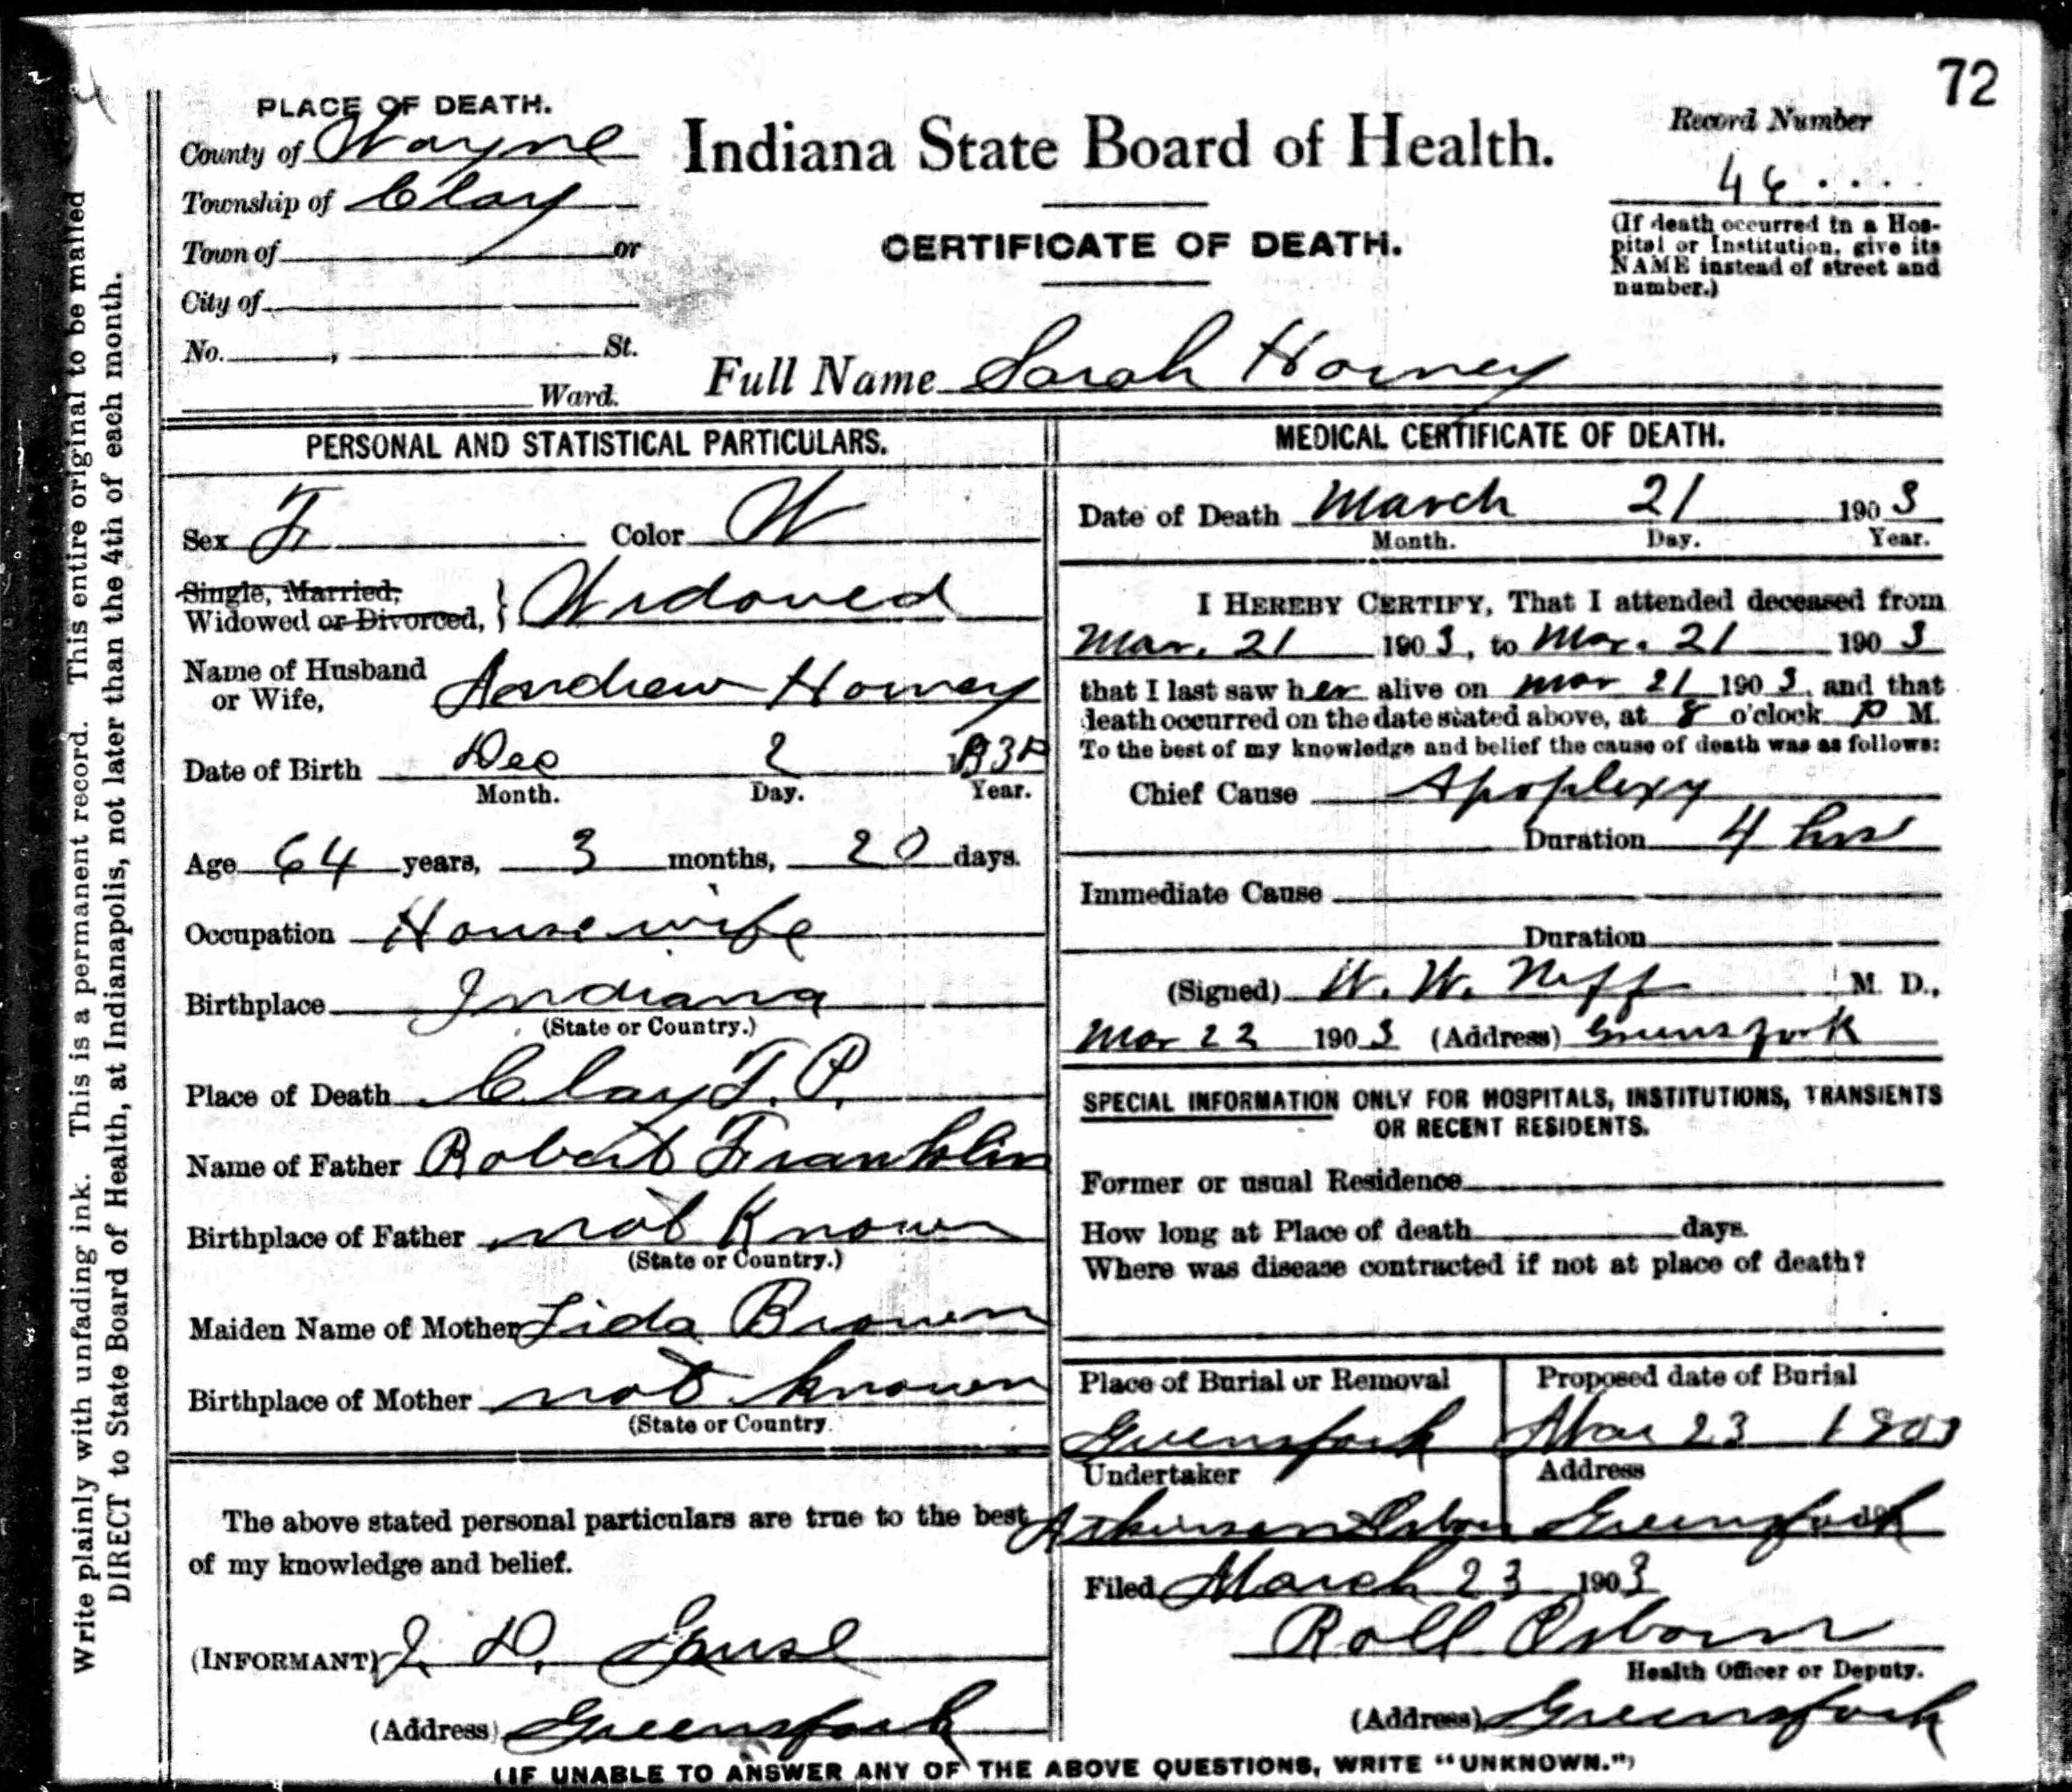 72
PLACE OF DEATH.
County of Wayne
Township of Clay
Town of or
City of
No. , St.
Ward.
Indiana State Board of Health.
CERTIFICATE OF DEATH.
Record Number
46
(If death occurred in a Hos-
pital or Institution, give its
NAME instead of street and
number.)
Full Name Sarah Horney
Write plainly with unfading ink. This is a permanent record. This entire original to be mailed
DIRECT to State Board of Health, at Indianapolis, not later than the 4th of each month.
PERSONAL AND STATISTICAL PARTICULARS.
Sex F Color W
Single, Married,
Widowed or Divorced, } Widowed
Name of Husband
or Wife, Andrew Horney
Date of Birth Dec 2
Month. Day. Year.
Age 64 years, 3 months, 20 days.
Occupation Housewife
Birthplace Indiana
(State or Country.)
Place of Death Clay T.P.
Name of Father Robert Franklin
Birthplace of Father not Known
(State or Country.)
Maiden Name of Mother Lida Brown
Birthplace of Mother not known
(State or Country.
The above stated personal particulars are true to the best
of my knowledge and belief.
(INFORMANT) J. D. Gause
(Address) Greensfork
MEDICAL CERTIFICATE OF DEATH.
Date of Death March 21 1903
Month. Day. Year.
I HEREBY CERTIFY, That I attended deceased from
Mar. 21 1903, to Mar. 21 1903
that I last saw her alive on Mar 21 1903, and that
death occurred on the date stated above, at 8 o'clock P M.
To the best of my knowledge and belief the cause of death was as follows:
Chief Cause Apoplexy
Duration 4 hrs
Immediate Cause
Duration
(Signed) W. W. Neff M. D.,
Mar 22 1903 (Address) Greensfork
SPECIAL INFORMATION ONLY FOR HOSPITALS, INSTITUTIONS, TRANSIENTS
OR RECENT RESIDENTS.
Former or usual Residence
How long at Place of death days.
Where was disease contracted if not at place of death?
Place of Burial or Removal Proposed date of Burial
Greensfork Mar 23 1903
Undertaker Address
Osborn Greensfork
Filed March 23 1903
Roll Osborn
Health Officer or Deputy.
(Address) Greensfork
(IF UNABLE TO ANSWER ANY OF THE ABOVE QUESTIONS, WRITE "UNKNOWN.")